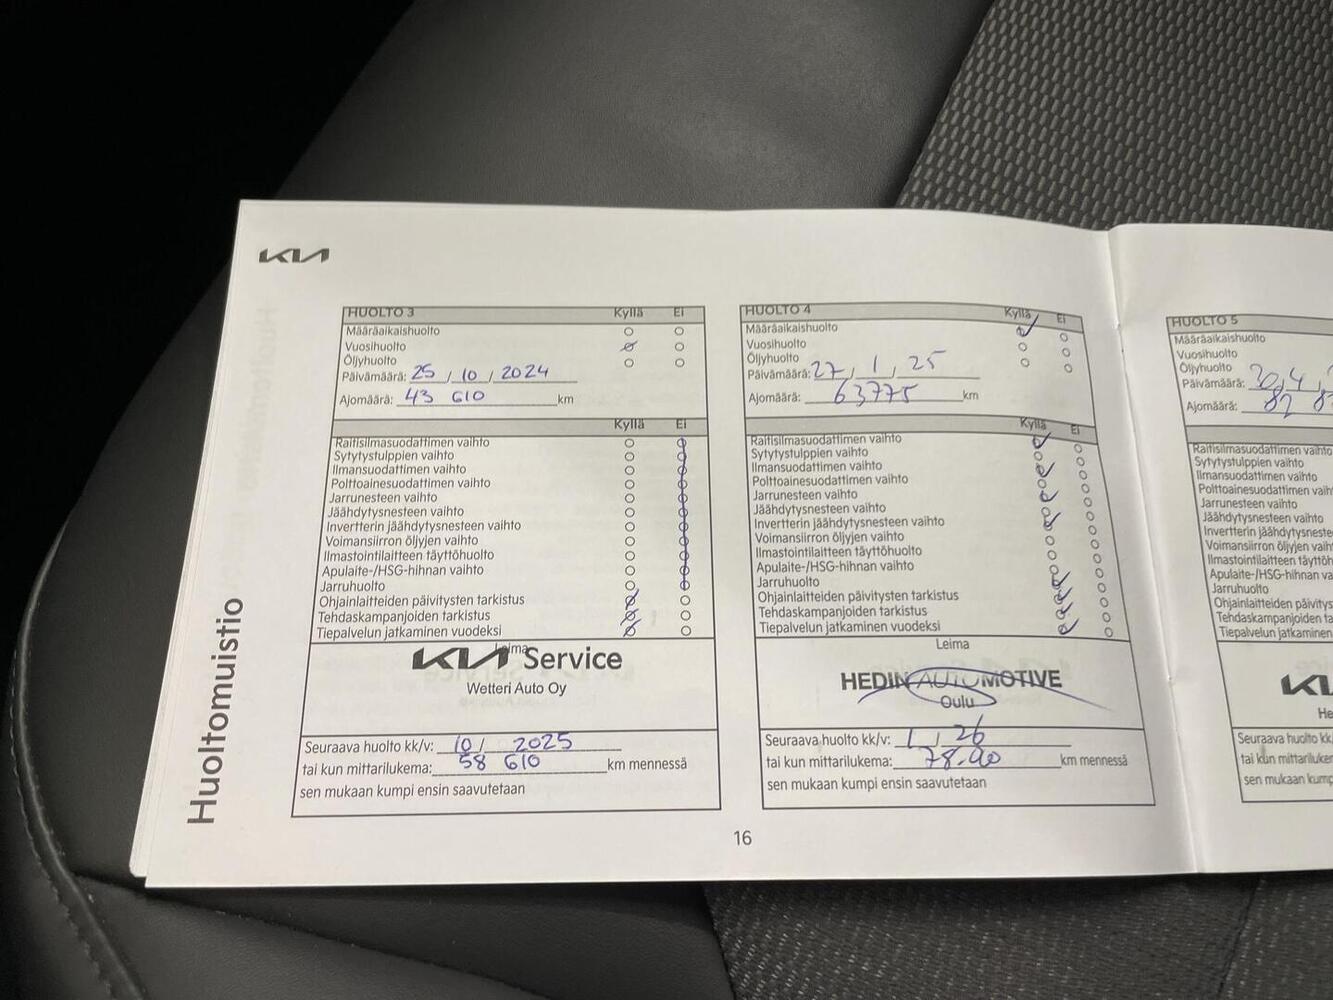 KIA
HUOLTO 3 Kyllä Ei
Määräaikaishuolto
Vuosihuolto
Öljyhuolto
Päivämäärä: 25 / 10 / 2024
Ajomäärä: 43 610 km
Kyllä Ei
Raitisilmasuodattimen vaihto
Sytytystulppien vaihto
Ilmansuodattimen vaihto
Polttoainesuodattimen vaihto
Jarrunesteen vaihto
Jäähdytysnesteen vaihto
Invertterin jäähdytysnesteen vaihto
Voimansiirron öljyjen vaihto
Ilmastointilaitteen täyttöhuolto
Apulaite-/HSG-hihnan vaihto
Jarruhuolto
Ohjainlaitteiden päivitysten tarkistus
Tehdaskampanjoiden tarkistus
Tiepalvelun jatkaminen vuodeksi
Leima
KIA Service
Wetteri Auto Oy
Seuraava huolto kk/v: 10 / 2025
tai kun mittarilukema: 58 610 km mennessä
sen mukaan kumpi ensin saavutetaan
HUOLTO 4 Kyllä Ei
Määräaikaishuolto
Vuosihuolto
Öljyhuolto
Päivämäärä: 27 / 1 / 25
Ajomäärä: 63775 km
Kyllä Ei
Raitisilmasuodattimen vaihto
Sytytystulppien vaihto
Ilmansuodattimen vaihto
Polttoainesuodattimen vaihto
Jarrunesteen vaihto
Jäähdytysnesteen vaihto
Invertterin jäähdytysnesteen vaihto
Voimansiirron öljyjen vaihto
Ilmastointilaitteen täyttöhuolto
Apulaite-/HSG-hihnan vaihto
Jarruhuolto
Ohjainlaitteiden päivitysten tarkistus
Tehdaskampanjoiden tarkistus
Tiepalvelun jatkaminen vuodeksi
Leima
HEDIN AUTOMOTIVE
Oulu
Seuraava huolto kk/v: 1 / 26
tai kun mittarilukema: km mennessä
sen mukaan kumpi ensin saavutetaan
HUOLTO 5
Määräaikaishuolto
Vuosihuolto
Öljyhuolto
Päivämäärä: 30, 4,
Ajomäärä: 82
Raitisilmasuodattimen vaihto
Sytytystulppien vaihto
Ilmansuodattimen vaihto
Polttoainesuodattimen vaih
Jarrunesteen vaihto
Jäähdytysnesteen vaihto
Invertterin jäähdytysneste
Voimansiirron öljyjen vaih
Ilmastointilaitteen täyttöh
Apulaite-/HSG-hihnan va
Jarruhuolto
Ohjainlaitteiden päivitys
Tehdaskampanjoiden tar
Tiepalvelun jatkaminen
He
Seuraava huolto kk
tai kun mittariluke
sen mukaan kump
Huoltomuistio
16